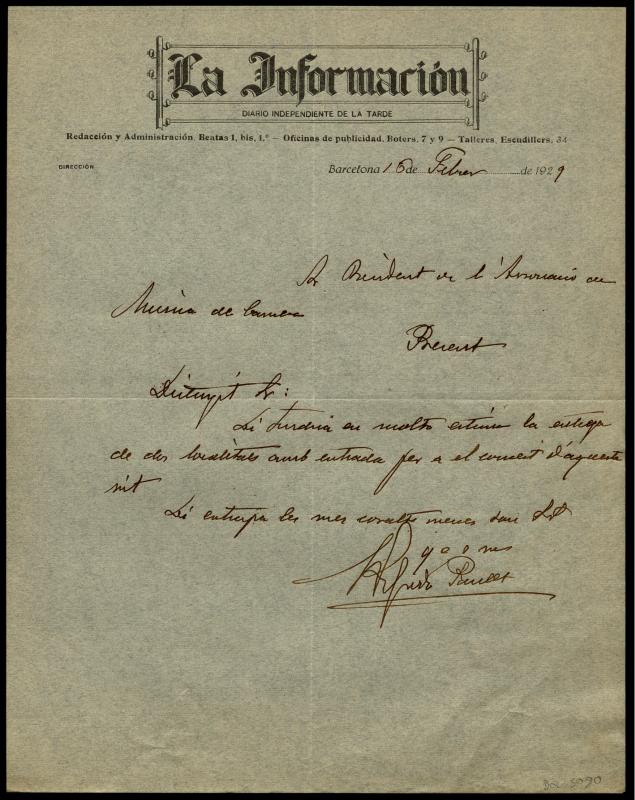 La Información
DIARIO INDEPENDIENTE DE LA TARDE
Redacción y Administración, Beatas 1, bis, 1.° — Oficinas de publicidad, Boters, 7 y 9 — Talleres, Escudillers, 34
DIRECCIÓN
Barcelona 15 de Febrer de 1929
Sr President de l'Associació de
Musica de Camera
Present
Distingit Sr:
Li tindria en molta estima la entrega
de dos localitats amb entrada per a el concert d'aquesta
nit
Li anticipa les mes corals merces son
Alfredo